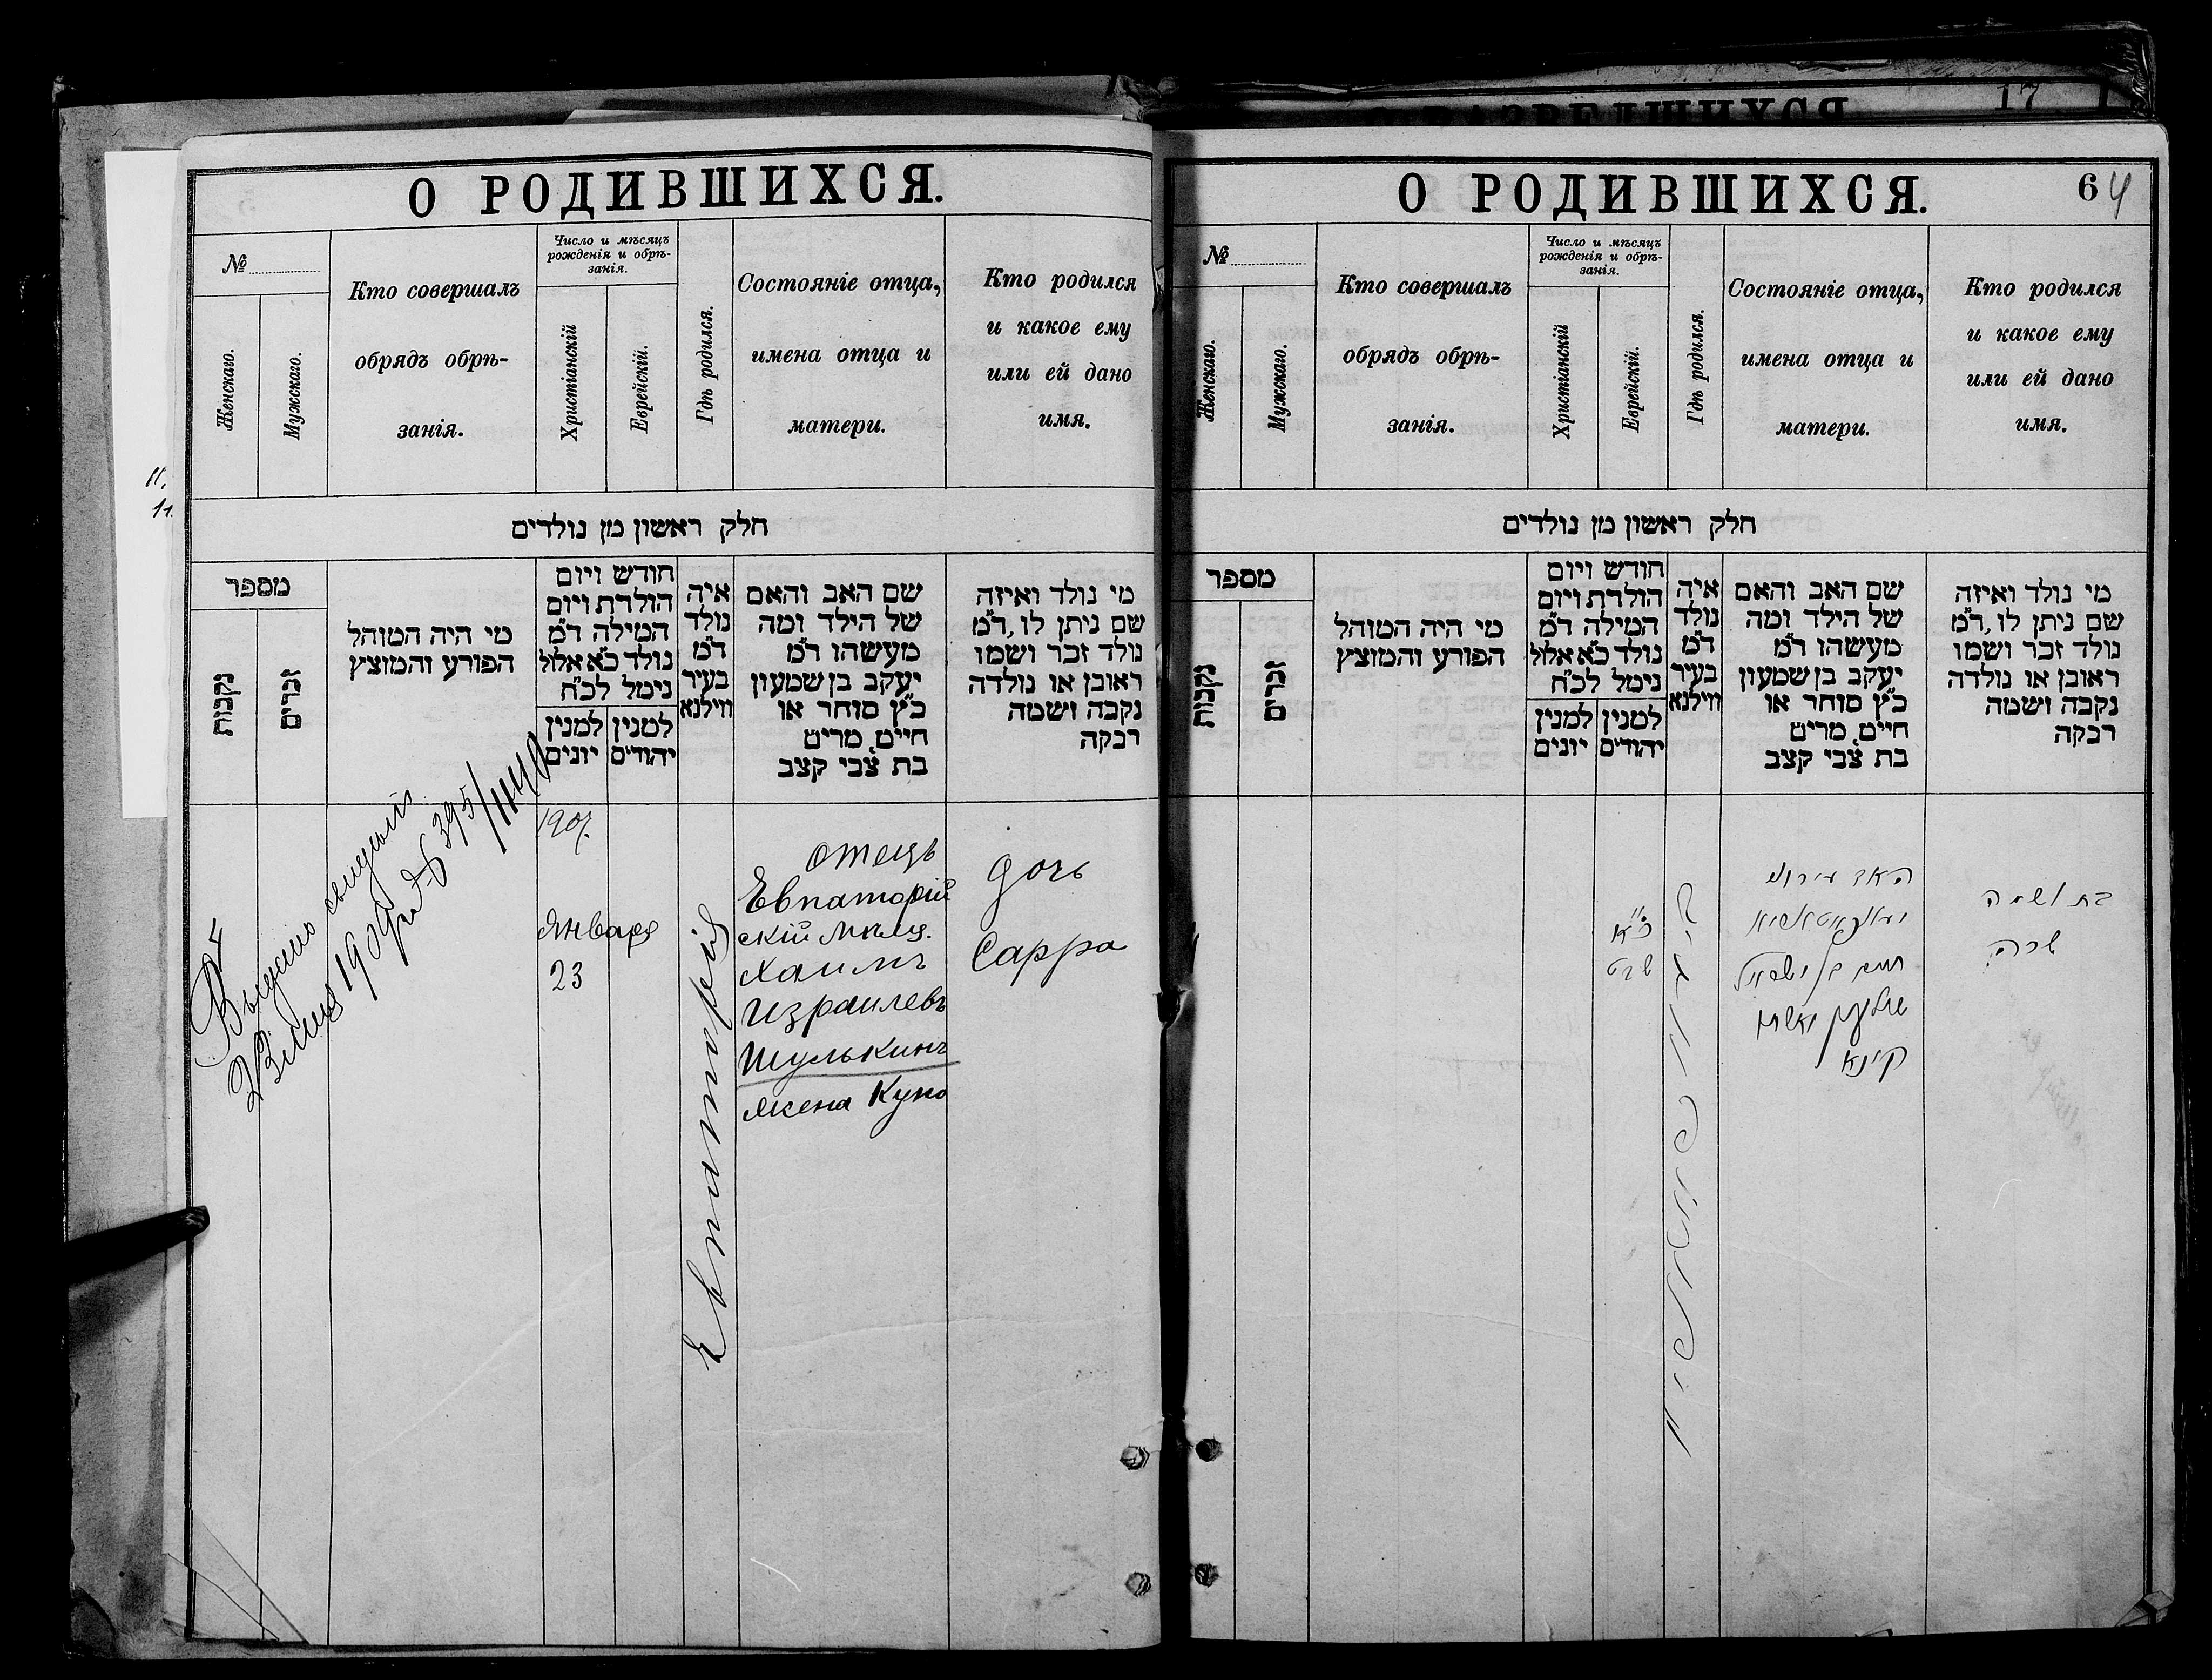 17
О РОДИВШИХСЯ.
№
Женскаго.
Мужскаго.
Кто совершалъ
обрядъ обрѣ-
занія.
Число и мѣсяцъ
рожденія и обрѣ-
занія.
Христіанскій
Еврейскій.
Гдѣ родился.
Состояніе отца,
имена отца и
матери.
Кто родился
и какое ему
или ей дано
имя.
חלק ראשון מן נולדים
מספר
נקבות
זכרים
מי היה המוהל
הפורע והמוצץ
חודש ויום
הולדת ויום
המילה ד״מ
נולד כ״א אלול
נימל לכ״ח
למנין
יונים
למנין
יהודים
איה
נולד
ד״מ
בעיר
ווילנא
שם האב והאם
של הילד ומה
מעשהו ד״מ
יעקב בן שמעון
כ״ץ סוחר או
חיים, מרים
בת צבי קצב
מי נולד ואיזה
שם ניתן לו, ד״מ
נולד זכר ושמו
ראובן או נולדה
נקבה ושמה
רבקה
1907.
Января
23
Евпаторія
отецъ
Евпаторій
скій мѣщ.
Хаимъ
Израилевъ
Шулькинъ
жена Куна
дочь
Сарра
О РОДИВШИХСЯ.
64
№
Женскаго.
Мужскаго.
Кто совершалъ
обрядъ обрѣ-
занія.
Число и мѣсяцъ
рожденія и обрѣ-
занія.
Христіанскій
Еврейскій.
Гдѣ родился.
Состояніе отца,
имена отца и
матери.
Кто родился
и какое ему
или ей дано
имя.
חלק ראשון מן נולדים
מספר
נקבות
זכרים
מי היה המוהל
הפורע והמוצץ
חודש ויום
הולדת ויום
המילה ד״מ
נולד כ״א אלול
נימל לכ״ח
למנין
יונים
למנין
יהודים
איה
נולד
ד״מ
בעיר
ווילנא
שם האב והאם
של הילד ומה
מעשהו ד״מ
יעקב בן שמעון
כ״ץ סוחר או
חיים, מרים
בת צבי קצב
מי נולד ואיזה
שם ניתן לו, ד״מ
נולד זכר ושמו
ראובן או נולדה
נקבה ושמה
רבקה
שבט
חיים בן ישראל
בת ושמה
שרה